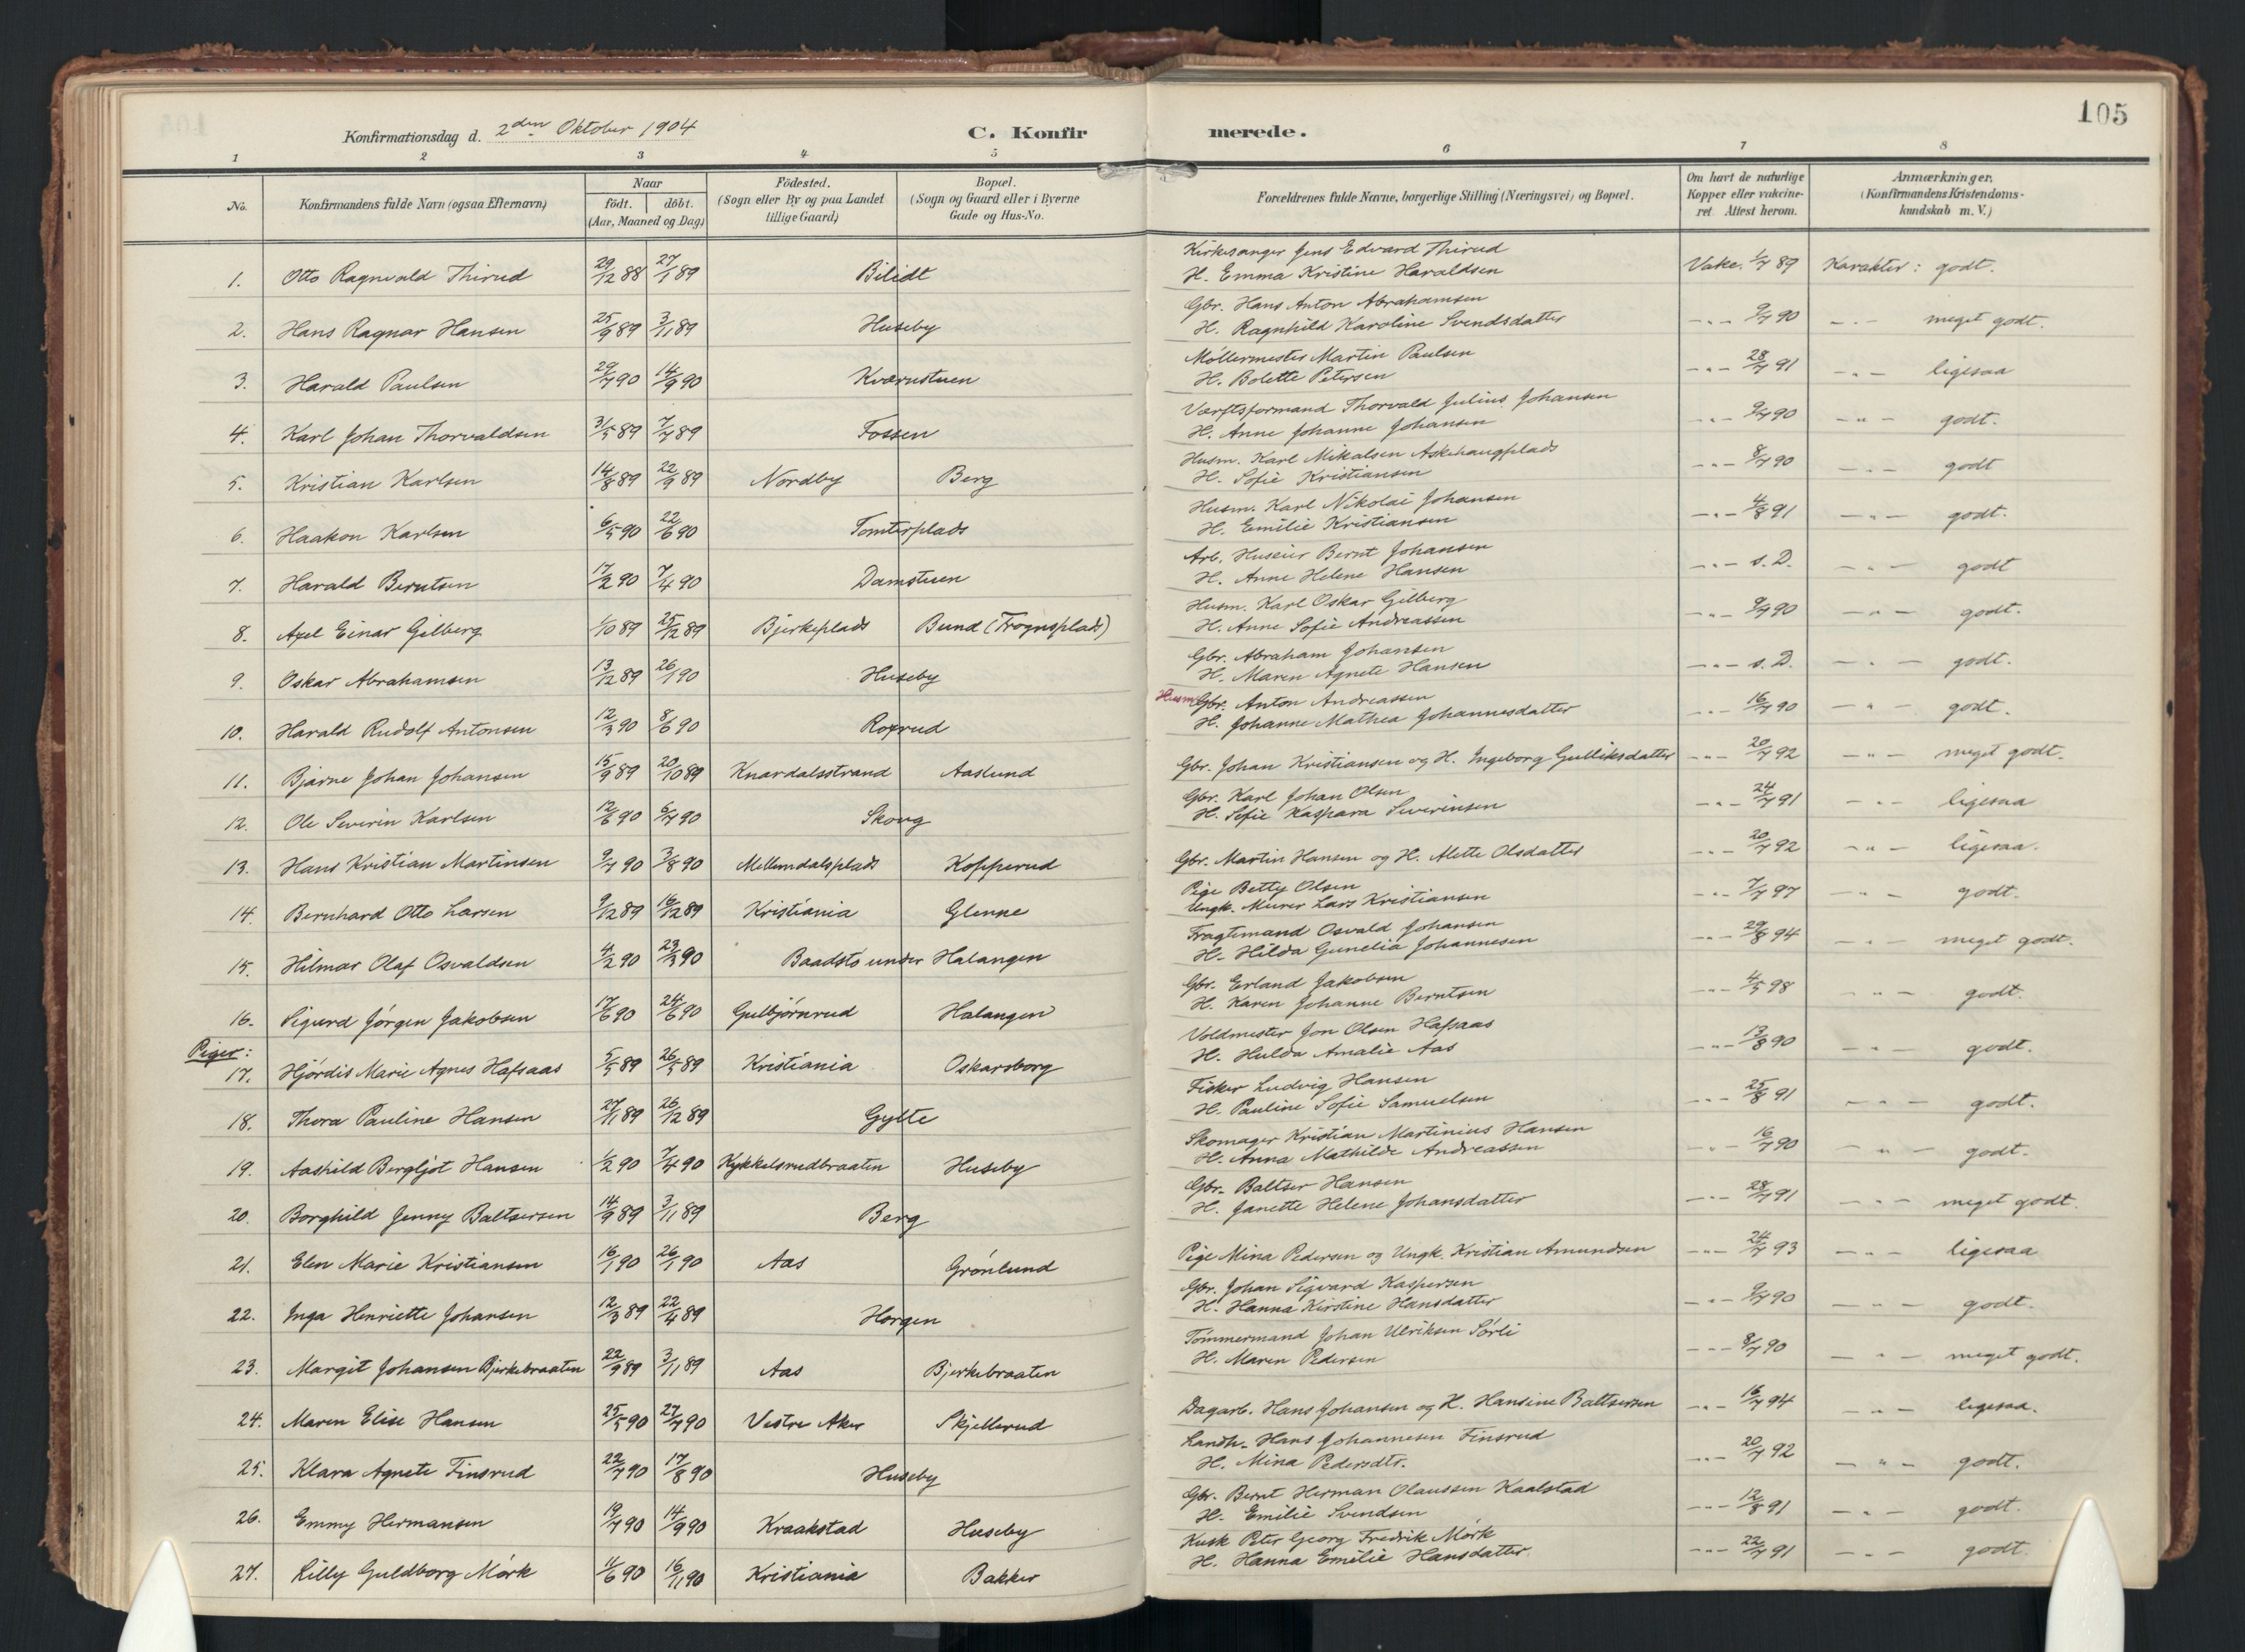 105
Konfirmationsdag d. 2den Oktober 1904
C. Konfirmerede.
1 2 3 4 5 6 7 8
No. Konfirmandens fulde Navn (ogsaa Efternavn) Naar födt. döbt. (Aar, Maaned og Dag) Födested. (Sogn eller By og paa Landet tillige Gaard) Bopæl. (Sogn og Gaard eller i Byerne Gade og Hus-No. Forældrenes fulde Navne, borgerlige Stilling (Næringsvei) og Bopæl. Om havt de naturlige Kopper eller vakcineret. Attest herom. Anmærkninger. (Konfirmandens Kristendomskundskab m. V.)
1. Otto Ragnvald Thirud 29/12 88 27/1 89 Bilidt Kirkesanger Jens Edvard Thirud
H. Emma Kristine Haraldsen Vakc. 1/7 89 Karakter: godt.
2. Hans Ragnar Hansen 25/9 89 3/11 89 Huseby Gbr. Hans Anton Abrahamsen
H. Ragnhild Karoline Svendsdatter -"- 9/7 90 -"- meget godt.
3. Harald Paulsen 29/7 90 14/9 90 Kværnstuen Möllermester Martin Paulsen
H. Bolette Petersen -"- 28/7 91 -"- ligesaa
4. Karl Johan Thorvaldsen 31/5 89 7/7 89 Fossen Værftsformand Thorvald Julius Johansen
H. Anne Johanne Johansen -"- 9/7 90 -"- godt.
5. Kristian Karlsen 14/8 89 22/9 89 Nordby Berg Husm. Karl Mikalsen Askehaugplads
H. Sofie Kristiansen -"- 8/7 90 -"- godt
6. Haakon Karlsen 6/5 90 22/6 90 Tomterplads Husm. Karl Nikolai Johansen
H. Emilie Kristiansen -"- 4/8 91 -"- godt.
7. Harald Berntsen 17/2 90 7/4 90 Damstuen Arb. Huseier Bernt Johansen
H. Anne Helene Hansen -"- s. D. -"- godt
8. Axel Einar Gilberg 1/10 89 25/12 89 Bjerkeplads Bund (Trognsplads) Husm. Karl Oskar Gilberg
H. Anne Sofie Andreassen -"- 9/7 90 -"- godt.
9. Oskar Abrahamsen 13/12 89 26/1 90 Huseby Gbr. Abraham Johansen
H. Maren Agnete Hansen -"- s. D. -"- godt.
10. Harald Rudolf Antonsen 12/3 90 8/6 90 Roxrud Husm. Gbr. Anton Andreassen
H. Johanne Mathea Johannesdatter -"- 16/7 90 -"- godt.
11. Bjarne Johan Johansen 15/9 89 20/10 89 Knardalsstrand Aaslund Gbr. Johan Kristiansen og H. Ingeborg Gulliksdatter -"- 20/7 92 -"- meget godt.
12. Ole Severin Karlsen 12/6 90 6/7 90 Skoug Gbr. Karl Johan Olsen
H. Sofie Kaspara Severinsen -"- 24/7 91 -"- ligesaa
13. Hans Kristian Martinsen 9/7 90 3/8 90 Mellemdalsplads Kopperud Gbr. Martin Hansen og H. Alette Olsdatter -"- 20/7 92 -"- ligesaa.
14. Bernhard Otto Larsen 9/12 89 16/12 89 Kristiania Glenne Pige Betty Olsen
Ungk. Murer Lars Kristiansen -"- 7/7 97 -"- godt.
15. Hilmar Olaf Osvaldsen 4/2 90 23/3 90 Baadstö under Halangen Fragtemand Osvald Johansen
H. Hilda Gunelia Johannesen -"- 29/8 94 -"- meget godt.
16. Sigurd Jörgen Jakobsen 17/6 90 24/6 90 Gulbjörnrud Halangen Gbr. Erland Jakobsen
H. Karen Johanne Berntsen -"- 4/5 98 -"- godt.
Piger:
17. Hjördis Marie Agnes Hafsaas 5/5 89 26/5 89 Kristiania Oskarsborg Voldmester Jon Olsen Hafsaas
H. Hulda Amalie Aas -"- 13/8 90 -"- godt.
18. Thora Pauline Hansen 27/11 89 26/12 89 Gylte Fisker Ludvig Hansen
H. Pauline Sofie Samuelsen -"- 25/8 91 -"- godt.
19. Aashild Bergljot Hansen 1/2 90 7/4 90 Kykkelsrudbraaten Huseby Skomager Kristian Martinius Hansen
H. Anna Mathilde Andreassen -"- 16/7 90 -"- godt.
20. Borghild Jenny Baltsersen 14/9 89 3/11 89 Berg Gbr. Baltser Hansen
H. Janette Helene Johansdatter -"- 28/7 91 -"- meget godt.
21. Elen Marie Kristiansen 16/1 90 26/1 90 Aas Grönlund Pige Mina Pedersen og Ungk. Kristian Amundsen -"- 24/7 93 -"- ligesaa
22. Inga Henriette Johansen 12/3 89 22/4 89 Horgen Gbr. Johan Sigvard Kaspersen
H. Hanna Kirstine Hansdatter -"- 9/7 90 -"- godt.
23. Margit Johansen Bjerkebraaten 22/9 89 3/11 89 Aas Bjerkebraaten Tömmermand Johan Ulriksen Sörli
H. Maren Pedersen -"- 8/7 90 -"- meget godt.
24. Maren Elise Hansen 25/5 90 27/7 90 Vestre Aker Skjellerud Dagarb. Hans Johansen og H. Hansine Baltsersen -"- 16/7 94 -"- ligesaa.
25. Klara Agnete Finsrud 22/7 90 17/8 90 Huseby Landh. Hans Johannesen Finsrud
H. Mina Pedersdtr. -"- 20/7 92 -"- godt.
26. Emmy Hermansen 19/7 90 14/9 90 Kraakstad Huseby Gbr. Bernt Herman Olaussen Kaalstad
H. Emilie Svendsen -"- 12/8 91 -"- godt.
27. Lilly Guldborg Mörk 11/6 90 16/11 90 Kristiania Bakker Kusk Peter Georg Fredrik Mörk
H. Hanna Emilie Hansdatter. -"- 22/7 91 -"- godt.